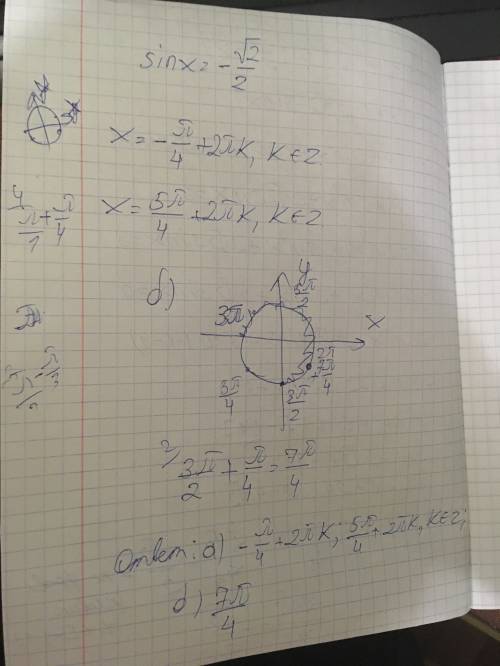 sinx = -√2/2
x = -π/4 + 2πk, k∈Z
4
π/1 + π/4
x = 5π/4 + 2πk, k∈Z
б)
y
5π/2
3π
x
2π
7π/4
5π/4
3π/2
2/ 3π/2 + π/4 = 7π/4
Ответ: а) -π/4 + 2πk; 5π/4 + 2πk, k∈Z;
б) 7π/4